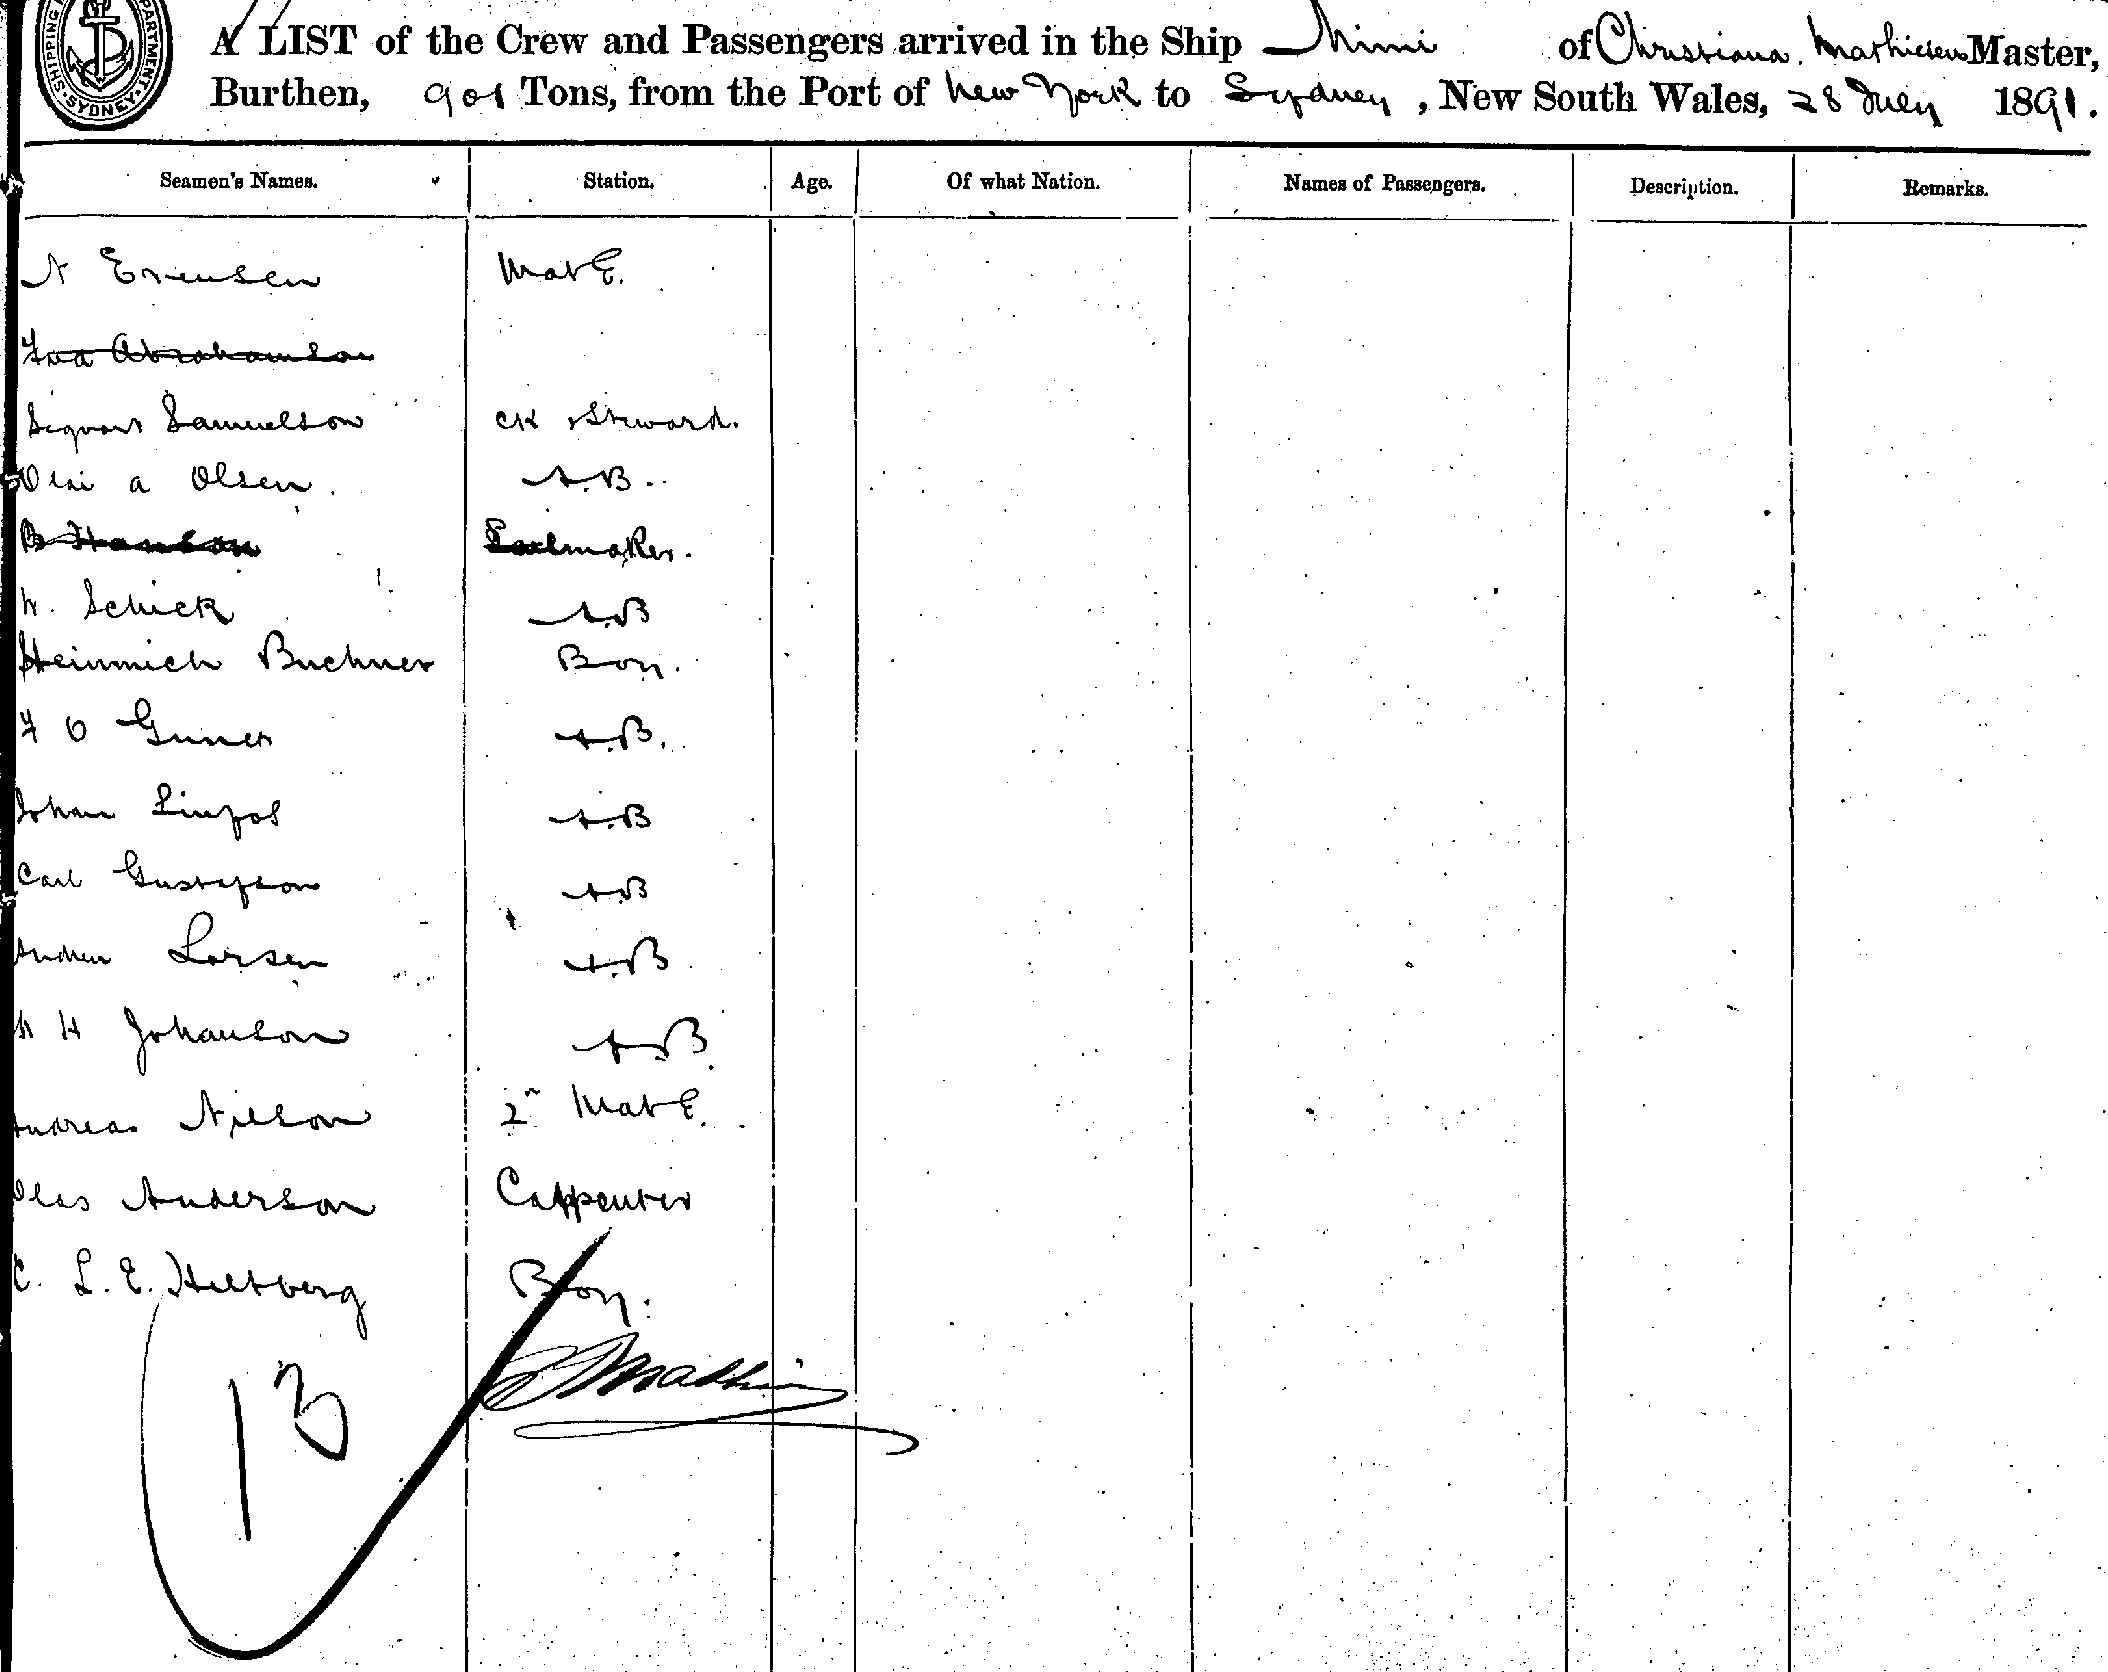 SHIPPING DEPARTMENT · SYDNEY ·
A LIST of the Crew and Passengers arrived in the Ship Mimi of Christiana. Mathiesen Master,
Burthen, 901 Tons, from the Port of New York to Sydney, New South Wales, 28 July 1891.
Seamen's Names. Station. Age. Of what Nation. Names of Passengers. Description. Remarks.
A Evensen MatE.
Abrahamson
Samuelson CK & Steward.
A Olsen. A.B.
B Hanson Sailmaker.
W. Schick A.B
Heinmich Buchner Boy.
F O Guner A.B.
Johan A.B
Carl Gustafson A.B
Andrew Larsen A.B
H Johanson A.B
Andreas Nilson 2n MatE.
Olas Anderson Carpenter
C. L. E. Hultberg Boy.
13